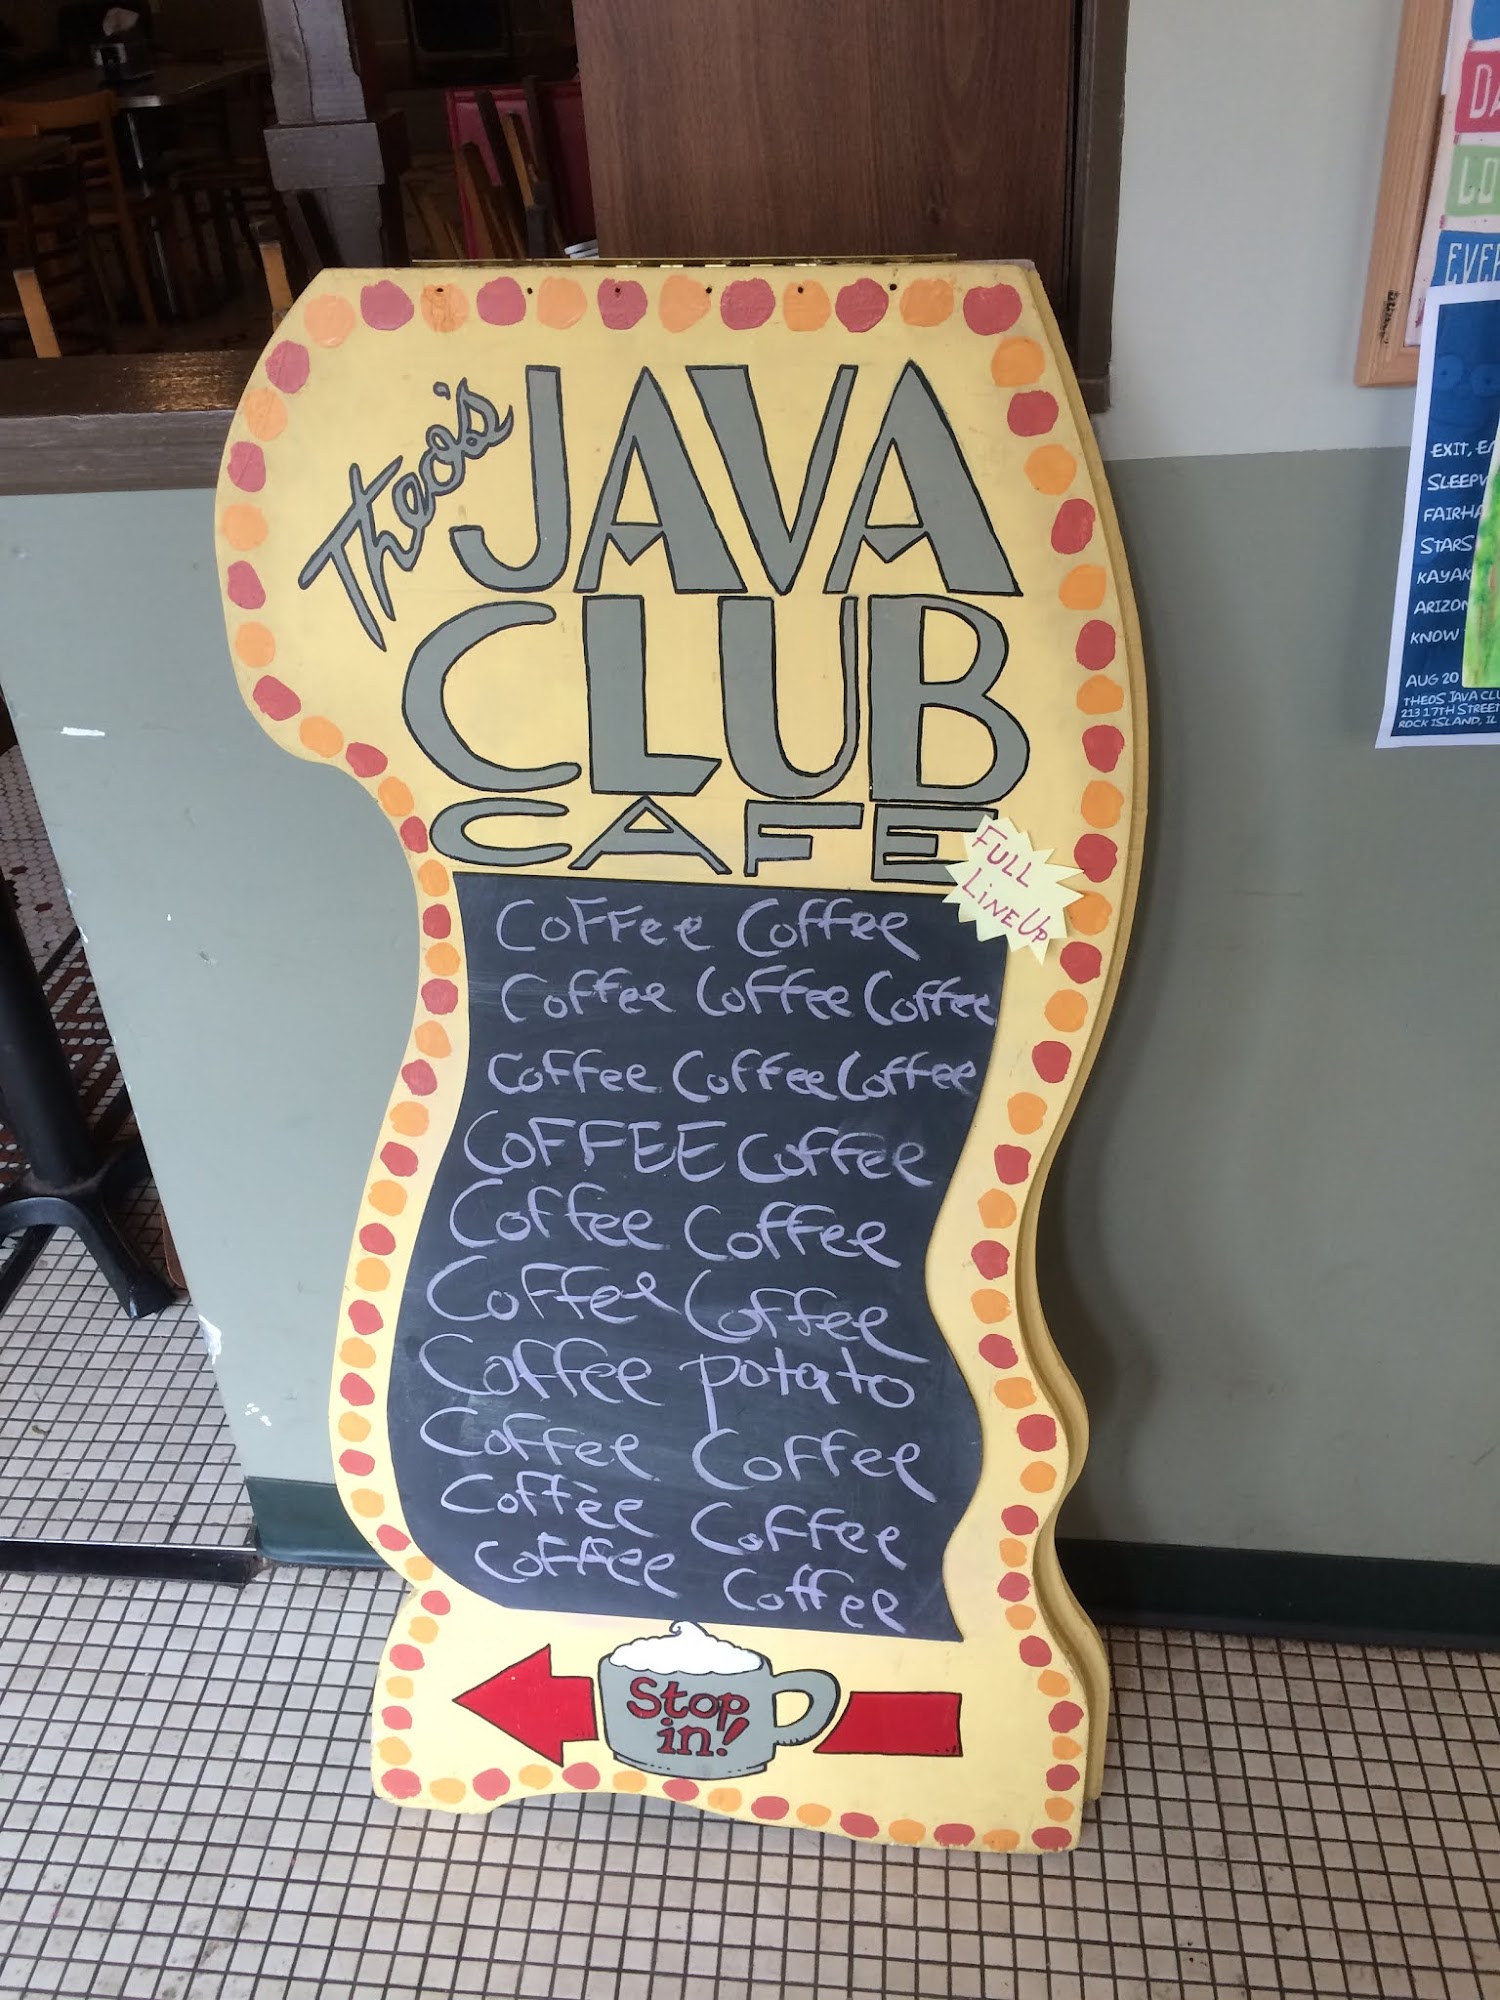 Theo's JAVA
CLUB
CAFE
FULL
LINE UP
COFFee Coffee
Coffee Coffee Coffee
Coffee Coffee Coffee
COFFEE Coffee
Coffee Coffee
Coffee Coffee
Coffee potato
Coffee Coffee
Coffee Coffee
Coffee Coffee
Stop
in!
DA
LO
EVE
EXIT,
SLEEP
FAIRHA
STARS
KAYAK
ARIZON
KNOW
AUG 20
THEOS JAVA CLU
213 17TH STREET
ROCK ISLAND, IL